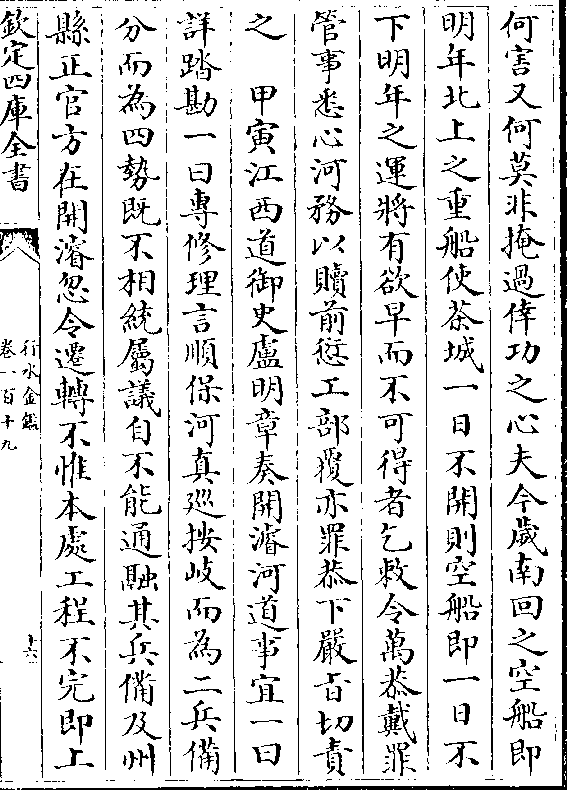 何害又何莫非掩過倖功之心夫今歲南回之空船即
明年北上之重船使茶城一日不開則空船即一日不
下明年之運將有欲早而不可得者乞敕令萬恭戴罪
管事悉心河務以贖前愆工部覆亦罪恭下嚴旨切責
之　甲寅江西道御史盧明章奏開濬河道事宜一曰
詳踏勘一曰專修理言順保河真巡按岐而為二兵備
分而為四勢既不相統屬議自不能通融其兵備及州
縣正官方在開濬忽令遷轉不惟本處工程不完即上
欽定四庫全書
行水金鑑
卷一百十九
十六